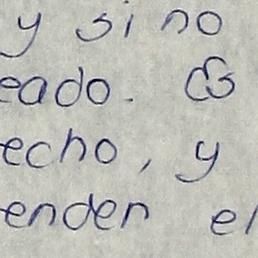 y si no
eado. Es
echo, y
ender el